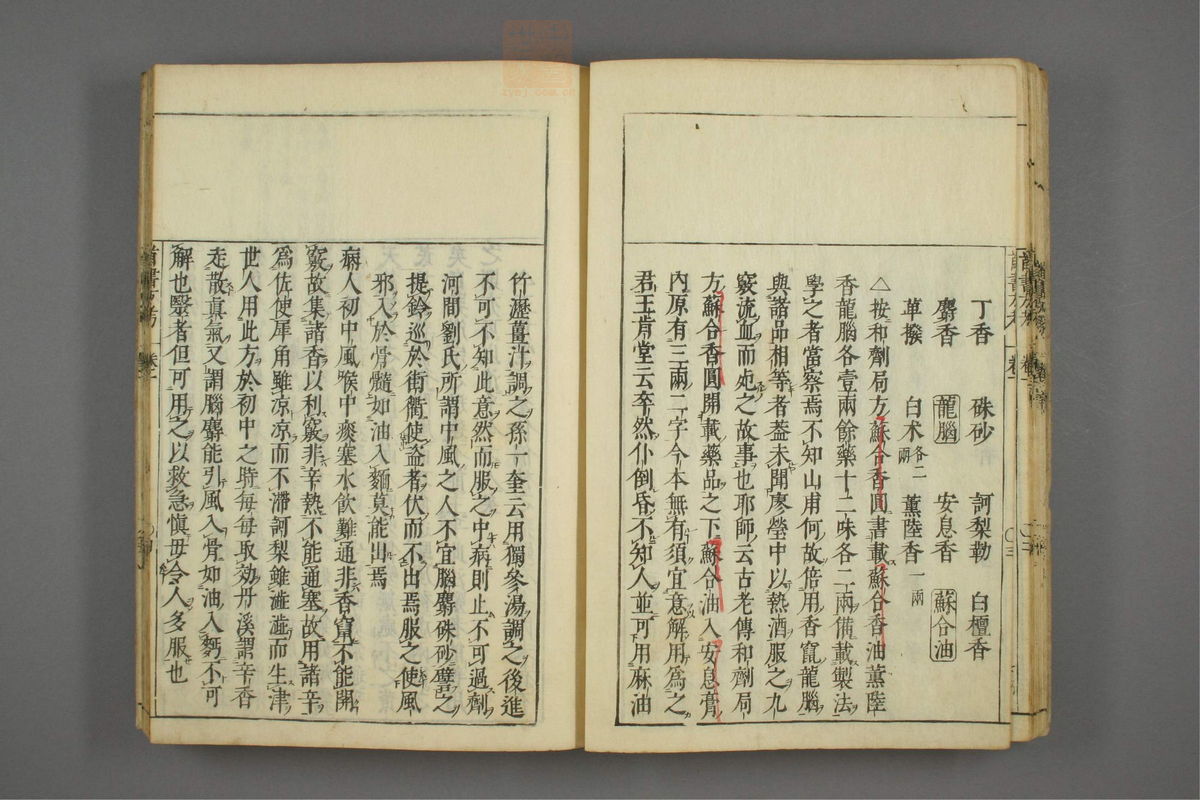 丁香 硃砂 訶梨勒 白檀香
麝香 龍腦 安息香 蘇合油
蓽撥 白朮各二兩 薰陸香一兩
△按和劑局方蘇合香圓書載蘇合香油薰陸
香龍腦各壹兩餘藥十二味各二兩備載製法
學之者當察焉不知山甫何故倍用香竄龍腦
與諸品相等者葢未聞廖瑩中以熱酒服之九
竅流血而死之故事也耶師云古老傳和劑局
方蘇合香圓開載藥品之下蘇合油入安息膏
內原有三兩二字今本無有須宜意解用爲之
君王肯堂云卒然仆倒昏不知人並可用麻油
竹瀝薑汁調之孫一奎云用獨參湯調之後進
不可不知此意然而服之中病則止不可過劑
河間劉氏所謂中風之人不宜腦麝硃砂譬之
提鈴巡於街衢使盜者伏而不出焉服之使風
邪入於骨髓如油入麵莫能出焉
病人初中風喉中痰塞水飲難通非香竄不能開
竅故集諸香以利竅非辛熱不能通塞故用諸辛
爲佐使犀角雖凉凉而不滯訶梨雖澁澁而生津
世人用此方於初中之時每每取効丹溪謂辛香
走散眞氣又謂腦麝能引風入骨如油入麪不可
解也醫者但可用之以救急愼毋令人多服也